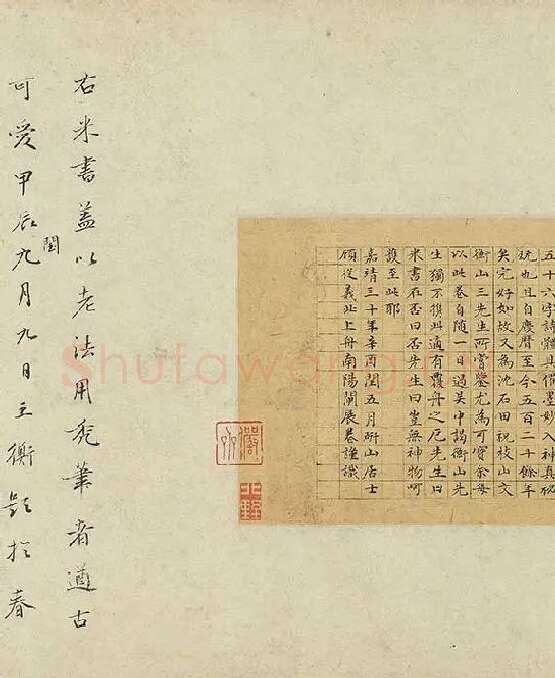 五十六字詩體具備墨妙入神真秘
玩也且自慶曆至今五百二十餘年
矣完好如故又為沈石田祝枝山文
衡山三先生所嘗鑒尤為可寶余每
以此卷自隨一日過吴中謁衡山先
生獨不携此適有覆舟之厄先生曰
米書在否曰否先生曰豈無神物呵
護至此耶
嘉靖三十年辛酉閏五月研山居士
顧從義北上舟南陽閘展卷謹識
右米書蓋以老法用禿筆者遒古
可愛甲辰閏九月九日王衡題於春